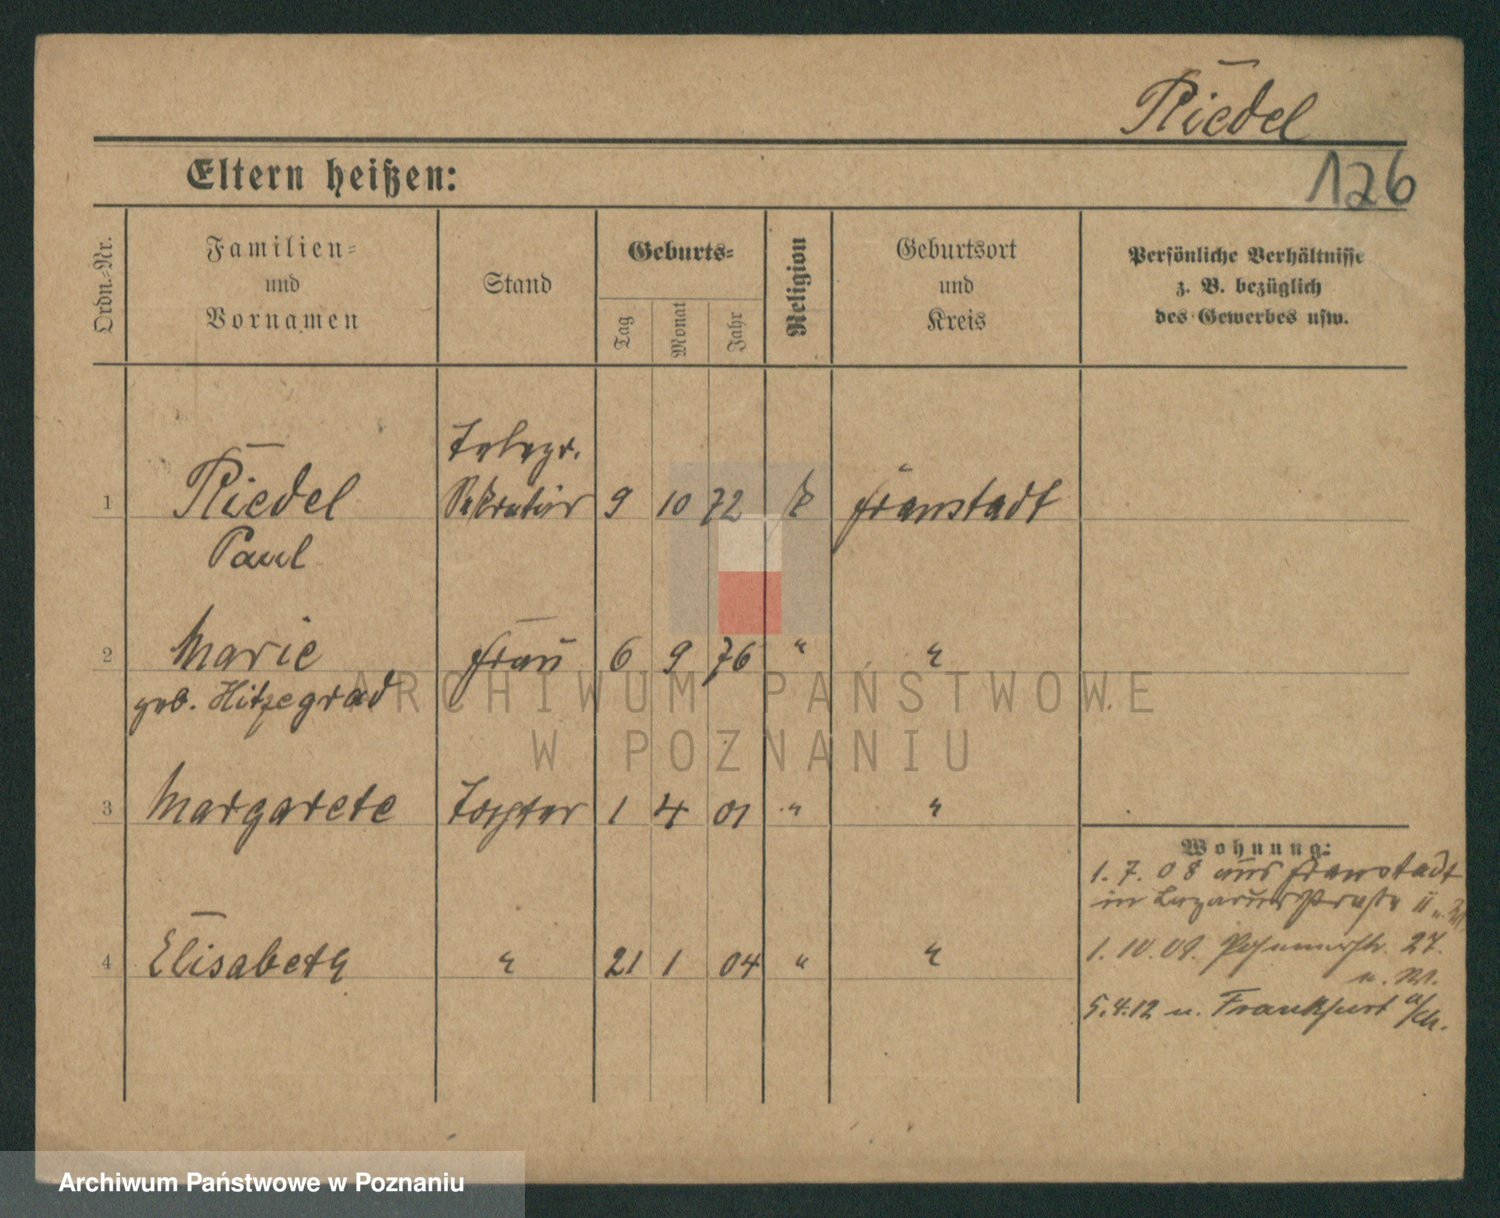 Riedel
126
Eltern heißen:
Ordn.-Nr.
Familien-
und
Vornamen
Stand
Geburts-
Tag
Monat
Jahr
Religion
Geburtsort
und
Kreis
Persönliche Verhältnisse
z. B. bezüglich
des Gewerbes usw.
Telegr.
1 Riedel Sekretär 9 10 72 k Fraustadt
Paul
2 Marie Frau 6 9 76 " "
geb. Hitzegrad
3 Margarete Tochter 1 4 01 " "
4 Elisabeth " 21 1 04 " "
Wohnung:
1. 7. 08 aus Fraustadt
in Lazarusstraße
1. 10. 09. 27.
5.4.12 n. Frankfurt
ARCHIWUM PAŃSTWOWE
W POZNANIU
Archiwum Państwowe w Poznaniu